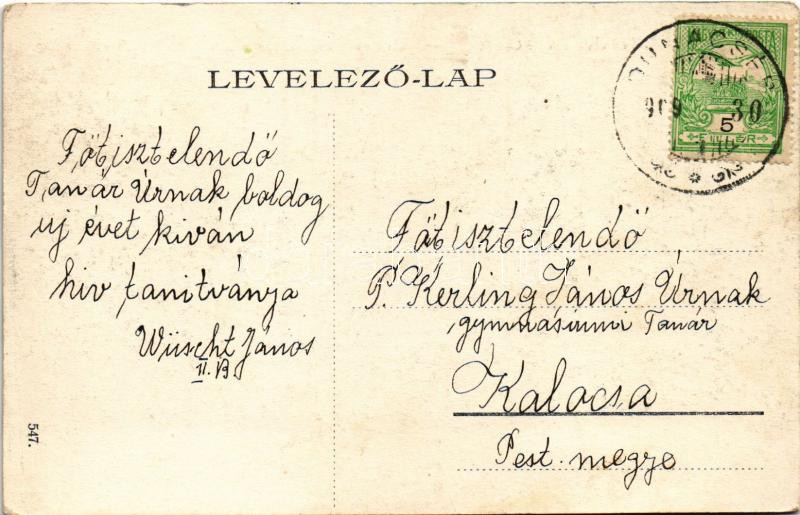 LEVELEZŐ-LAP
DUNACSÉB
909
30
5
FILLÉR
Főtisztelendő
Tanár Úrnak boldog
uj évet kiván
hiv tanitványa
Wüscht János
II. B.
Főtisztelendő
P. Kerling János Úrnak
gymnásiumi Tanár
Kalocsa
Pest megye
547.